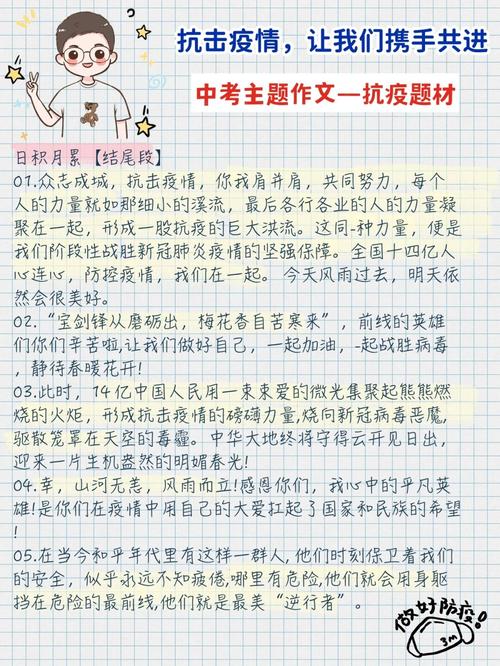 抗击疫情，让我们携手共进
中考主题作文—抗疫题材
日积月累【结尾段】
01.众志成城，抗击疫情，你我肩并肩，共同努力，每个
人的力量就如那细小的溪流，最后各行各业的人的力量凝
聚在一起，形成一股抗疫的巨大洪流。这同-种力量，便是
我们阶段性战胜新冠肺炎疫情的坚强保障。全国十四亿人
心连心，防控疫情，我们在一起。今天风雨过去，明天依
然会很美好。
02.“宝剑锋从磨砺出，梅花香自苦寒来”，前线的英雄
们你们辛苦啦,让我们做好自己，一起加油，-起战胜病毒
，静待春暖花开!
03.此时，14亿中国人民用一束束爱的微光集聚起熊熊燃
烧的火炬，形成抗击疫情的磅礴力量,烧向新冠病毒恶魔,
驱散笼罩在天空的毒霾。中华大地终将守得云开见日出，
迎来一片生机盎然的明媚春光!
04.幸，山河无恙，风雨而立!感恩你们，我心中的平凡英
雄!是你们在疫情中用自己的大爱扛起了国家和民族的希望
!
05.在当今和平年代里有这样一群人,他们时刻保卫着我们
的安全，似乎永远不知疲倦,哪里有危险,他们就会用身躯
挡在危险的最前线,他们就是最美“逆行者”。
做好防疫!
3M